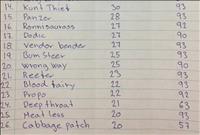 14. Kunt Thief 30 93
15. Panzer 28 93
16. Ronnisaurass 27 92
17. Dodic 27 90
18. Vendor bender 27 93
19. Bum Steer 25 93
20. Wrong way 25 90
21. Reeter 23 93
22. Blood fairy 22 93
23. Propo 22 92
24. Deep throat 21 63
25. Meat less 20 93
26. Cabbage patch 20 57